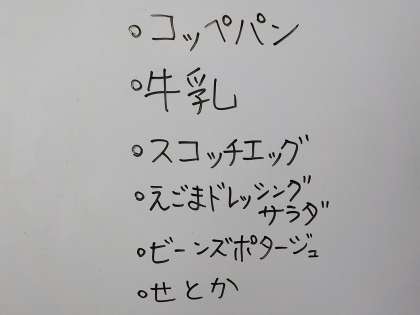 ○コッペパン
○牛乳
○スコッチエッグ
○えごまドレッシング
サラダ
○ビーンズポタージュ
○せとか